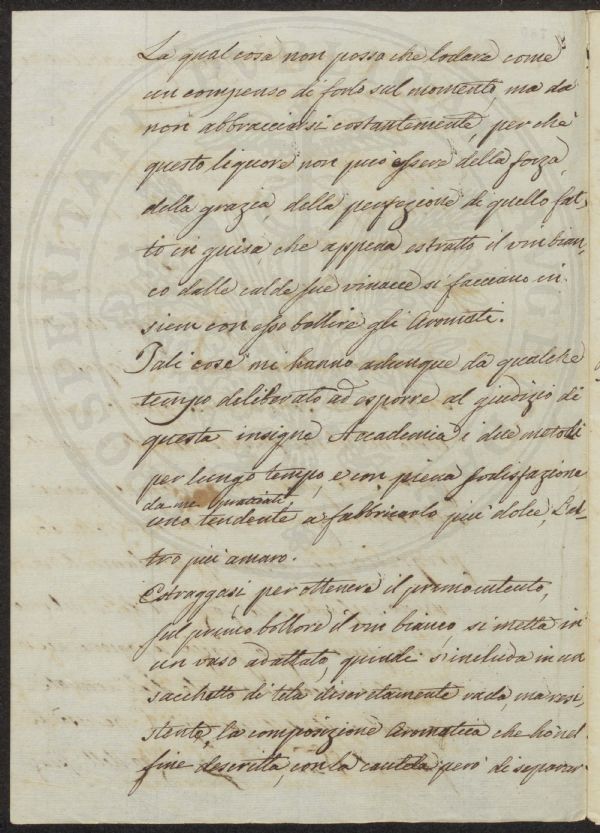 La qual cosa non posso che lodare come
un compenso di farlo sul momento, ma da
non abbracciarsi costantemente, perchè
questo liquore non può essere della forza,
della grazia, della perfezione di quello fat,
to in guisa che appena estratto il vin bian,
co dalle calde sue vinacce si facciano in
siem con esso bollire gli Aromati.
Tali cose mi hanno adunque da qualche
tempo deliberato ad esporre al giudizio di
questa insigne Accademia i due metodi
per lungo tempo, e con piena sodisfazione
da me praticati,
uno tendente a fabbricarlo più dolce, L'al-
tro più amaro.
Estraggasi, per ottenere il primo intento,
sul primo bollore il vin bianco, si metta in
un vaso adattato, quindi s'includa in un
sacchetto di tela discretamente rada, ma resi,
stente, la composizione Aromatica che hò nel
fine descritta, con la cautela però di separar